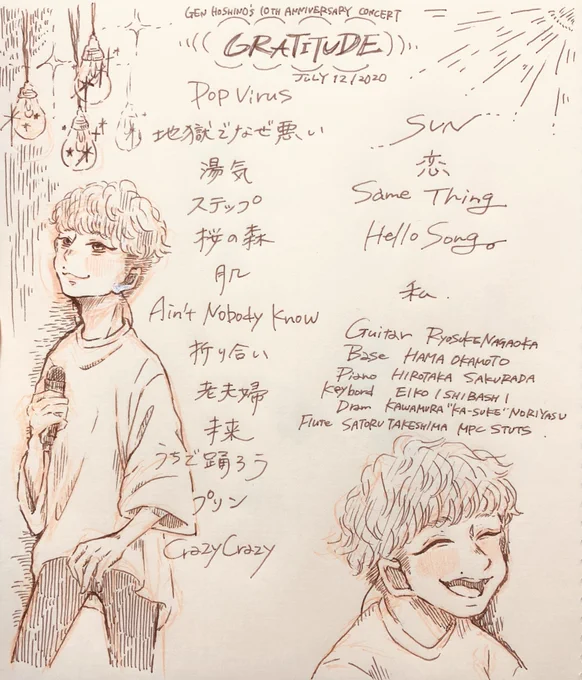 GEN HOSHINO'S 10TH ANNIVERSARY CONCERT
GRATITUDE
JULY 12/2020
Pop Virus
地獄でなぜ悪い
湯気
ステップ
桜の森
肌
Ain't Nobody Know
折り合い
老夫婦
未来
うちで踊ろう
プリン
Crazy Crazy
SUN
恋
Same Thing
Hello Song
私
Guitar RYOSUKE NAGAOKA
Base HAMA OKAMOTO
Piano HIROTAKA SAKURADA
Keybord EIKO ISHIBASHI
Dram KAWAMURA "KA-SUKE" NORIYASU
Flute SATORU TAKESHIMA MPC STUTS.